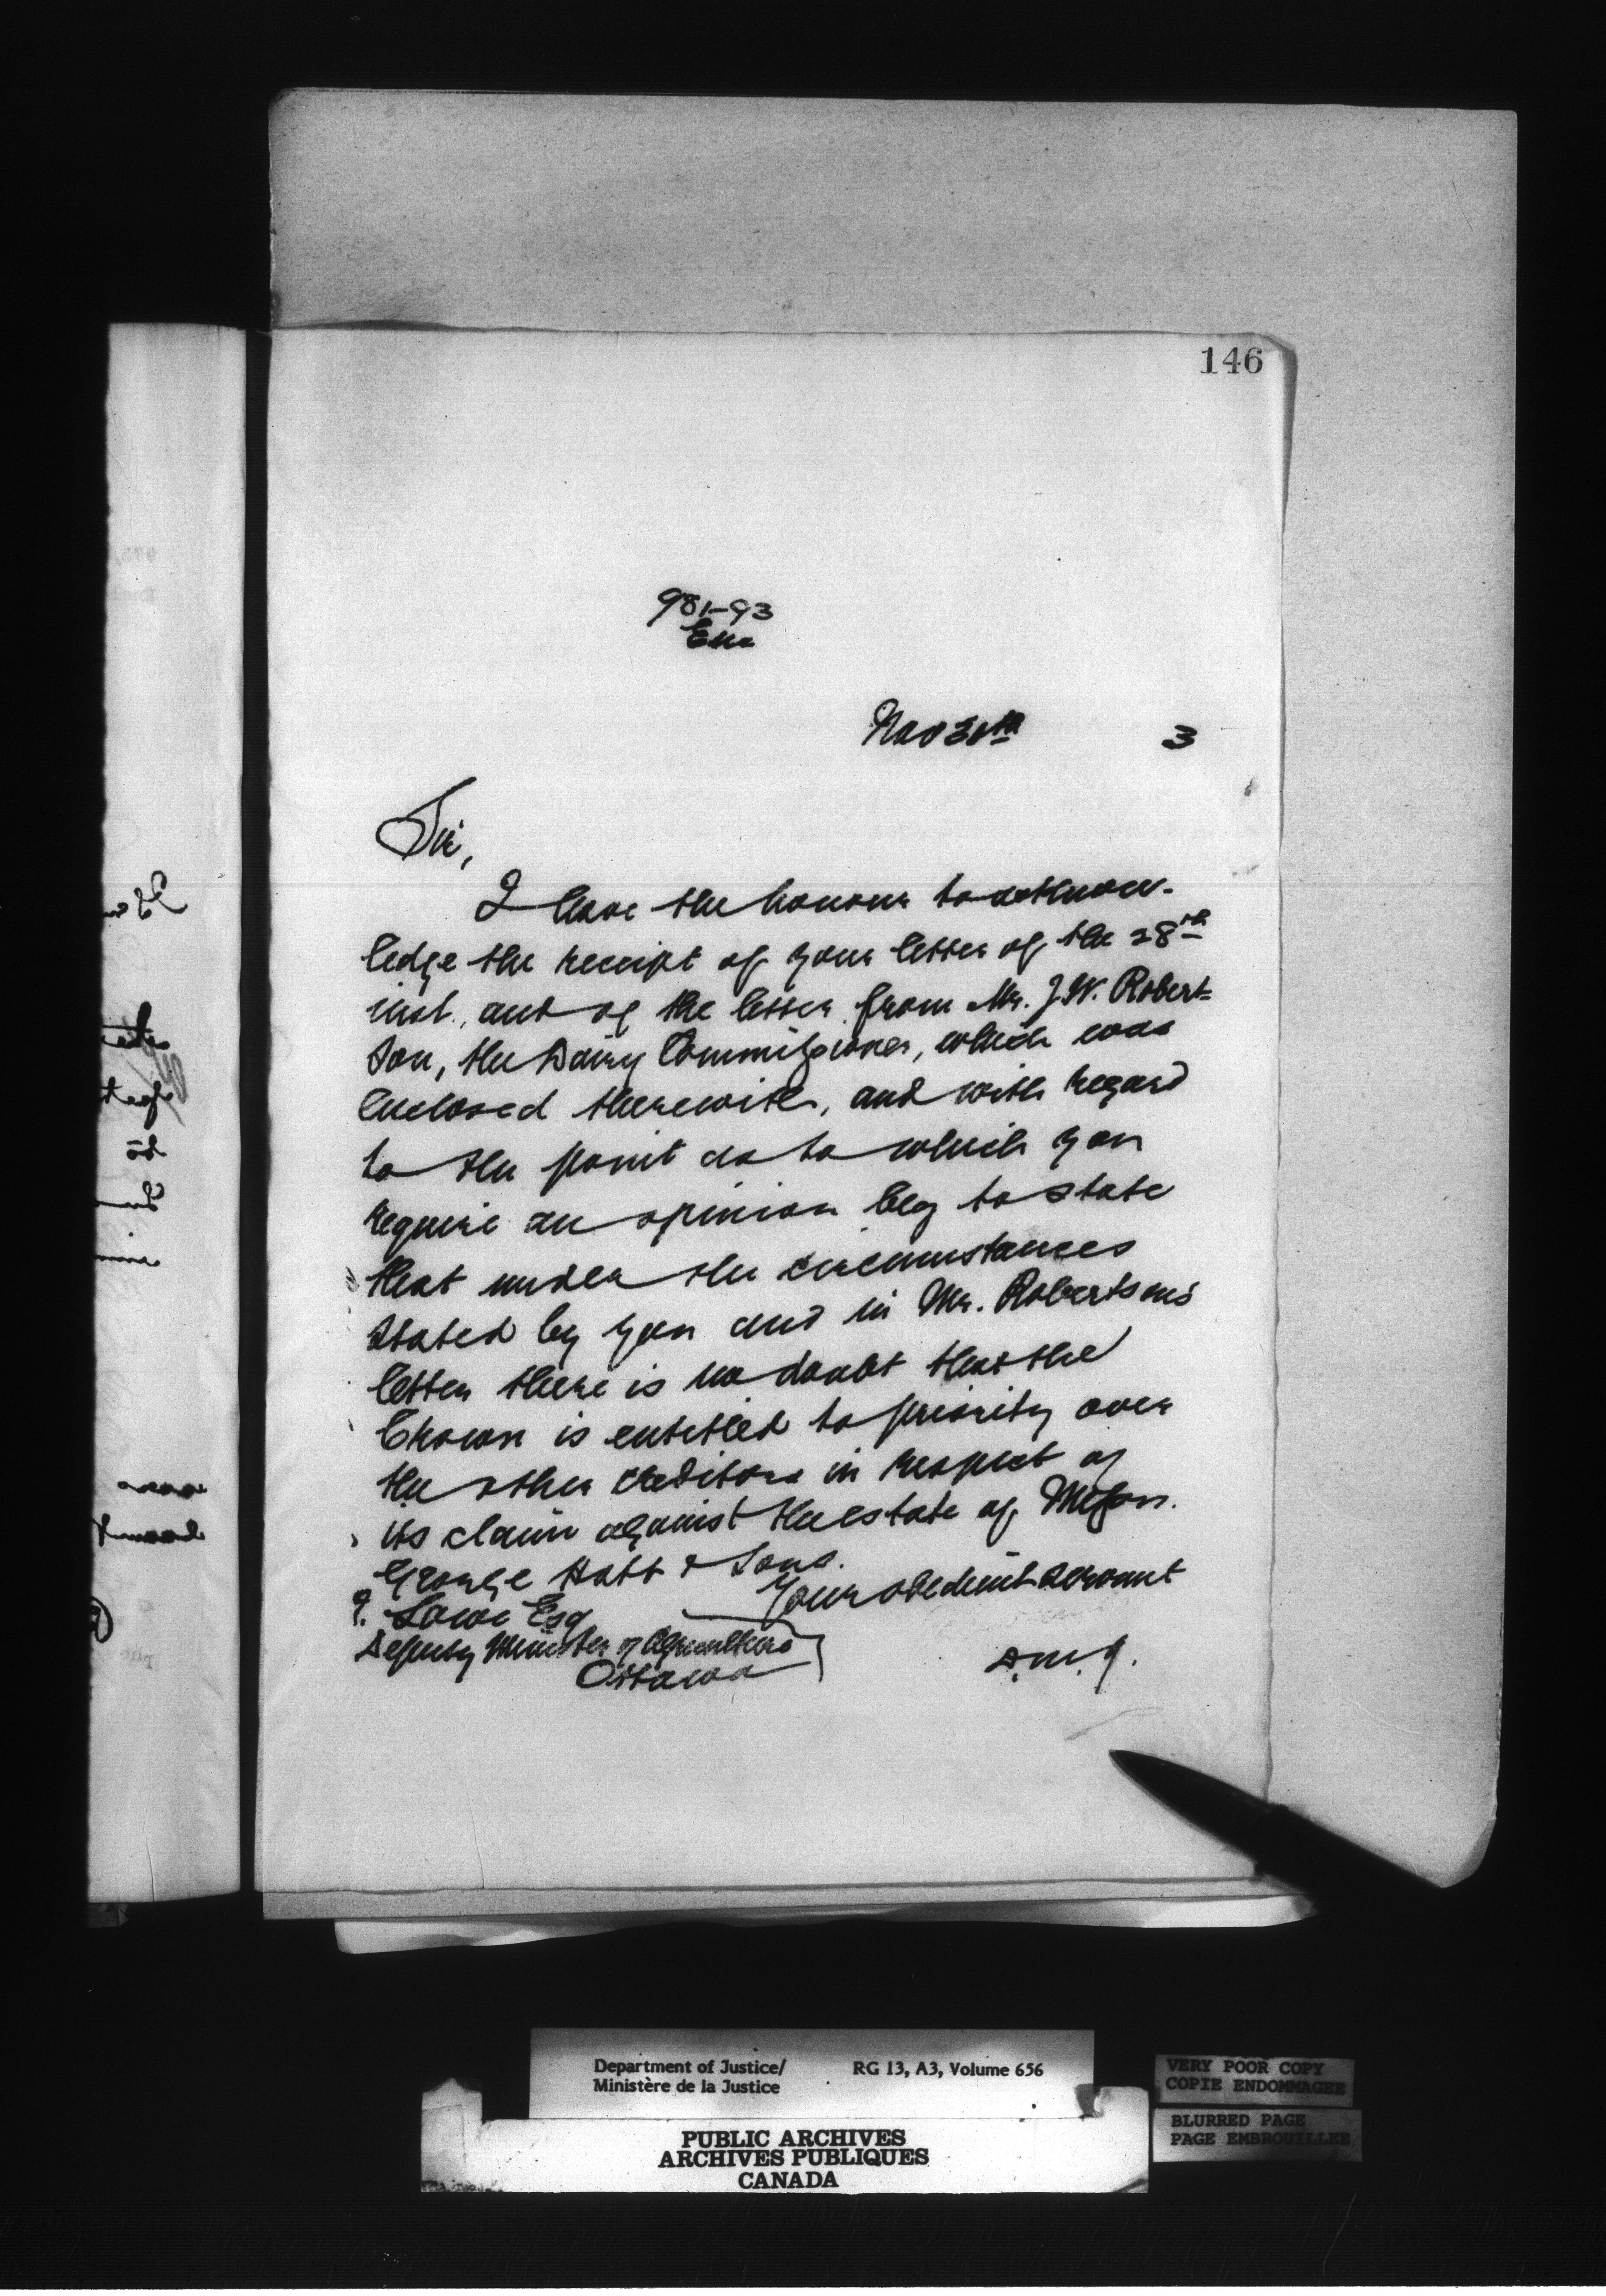 146
981-93
Enc
Nov 30th 3
Sir,
I have the honour to acknow-
ledge the receipt of your letter of the 28th
inst., and of the letter from Mr. J.W. Robert-
son, the Dairy Commissioner, which was
enclosed therewith, and with regard
to the point as to which you
require an opinion beg to state
that under the circumstances
stated by you and in Mr. Robertsons
letter there is no doubt that the
Crown is entitled to priority over
the other creditors in respect of
its claim against the estate of Messrs.
George Hatt & Sons.
Your obedient servant
J. Lowe Esq
Deputy Minister of Agriculture
Ottawa
D.M.J.
Department of Justice/ RG 13, A3, Volume 656
Ministère de la Justice
PUBLIC ARCHIVES
ARCHIVES PUBLIQUES
CANADA
VERY POOR COPY
COPIE ENDOMMAGEE
BLURRED PAGE
PAGE EMBROUILLEE